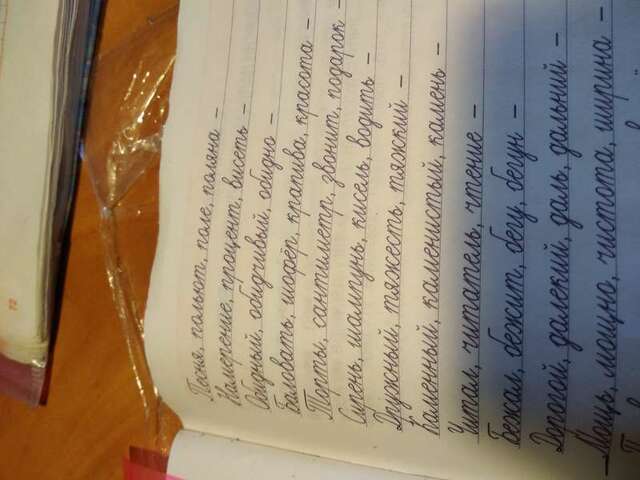 Песня, пальто, поле, поляна –
Намерение, процент, висеть –
Обидный, обидчивый, обидно –
Баловать, шофёр, крапива, красота –
Торты, сантиметр, звонит, подарок –
Ступень, шампунь, кисель, водить –
Дружный, тяжесть, тяжкий –
Каменный, каменистый, камень –
Читал, читатель, чтение –
Бежал, бежит, бегу, бегун –
Дорогой, далекий, даль, дальний –
Мощь, мощно, чистота, ширина –
72